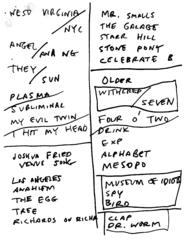 WEST VIRGINIA
NYC
ANGEL
ANA NG
THEY
SUN
PLASMA
SUBLIMINAL
MY EVIL TWIN
I HIT MY HEAD
JOSHUA FRIED
VENUE SONG
LOS ANGELES
ANAHEIM
THE EGG
TREE
RICHARDS ON RICHA
MR. SMALLS
THE GALAGE
STARR HILL
STONE PONY
CELEBRATE B
OLDER
WITHERED
SEVEN
FOUR O' TWO
DRINK
EXP
ALPHABET
MESOPO
MUSEUM OF IDIOTS
SPY
BIRD
CLAP
DR. WORM